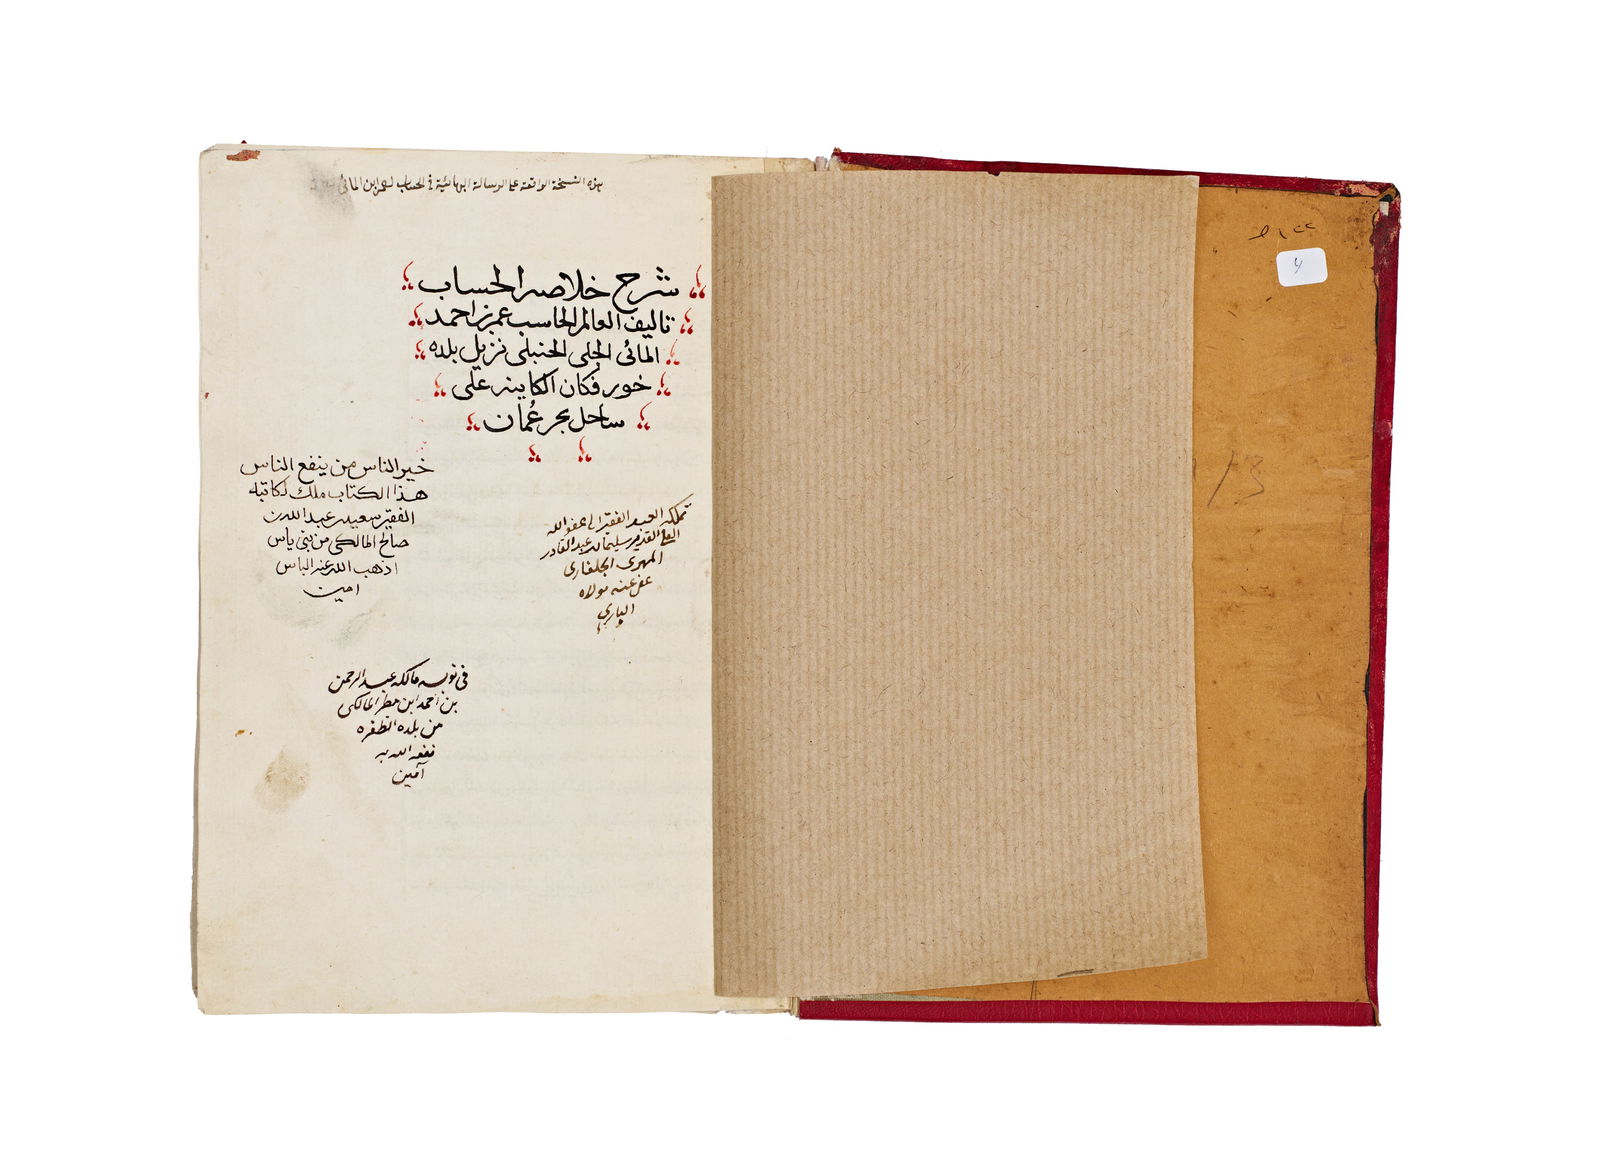 هذه النسخة الواقعة على الرسالة البهائية في الحساب لعمر ابن المائي
شرح خلاصه الحساب
تاليف العالم الحاسب عمر بن احمد
المائي الجلي الحنبلي نزيل بلده
خور فكان الكاينه على
ساحل بحر عُمان
خير الناس من ينفع الناس
هذا الكتاب ملك لكاتبه
الفقير سعيد بن عبد الله بن
صالح المالكي من بني ياس
اذهب الله عنه الباس
امين
تملكه العبد الفقير الى عفو الله
العلي القدير سليمان بن عبد القادر
المهري الجلفاري
عفى عنه مولاه
الباري
في نوبه مالكه عبد الرحمن
بن أحمد ابن مطر المالكي
من بلده الظفره
نفعه الله به
آمين